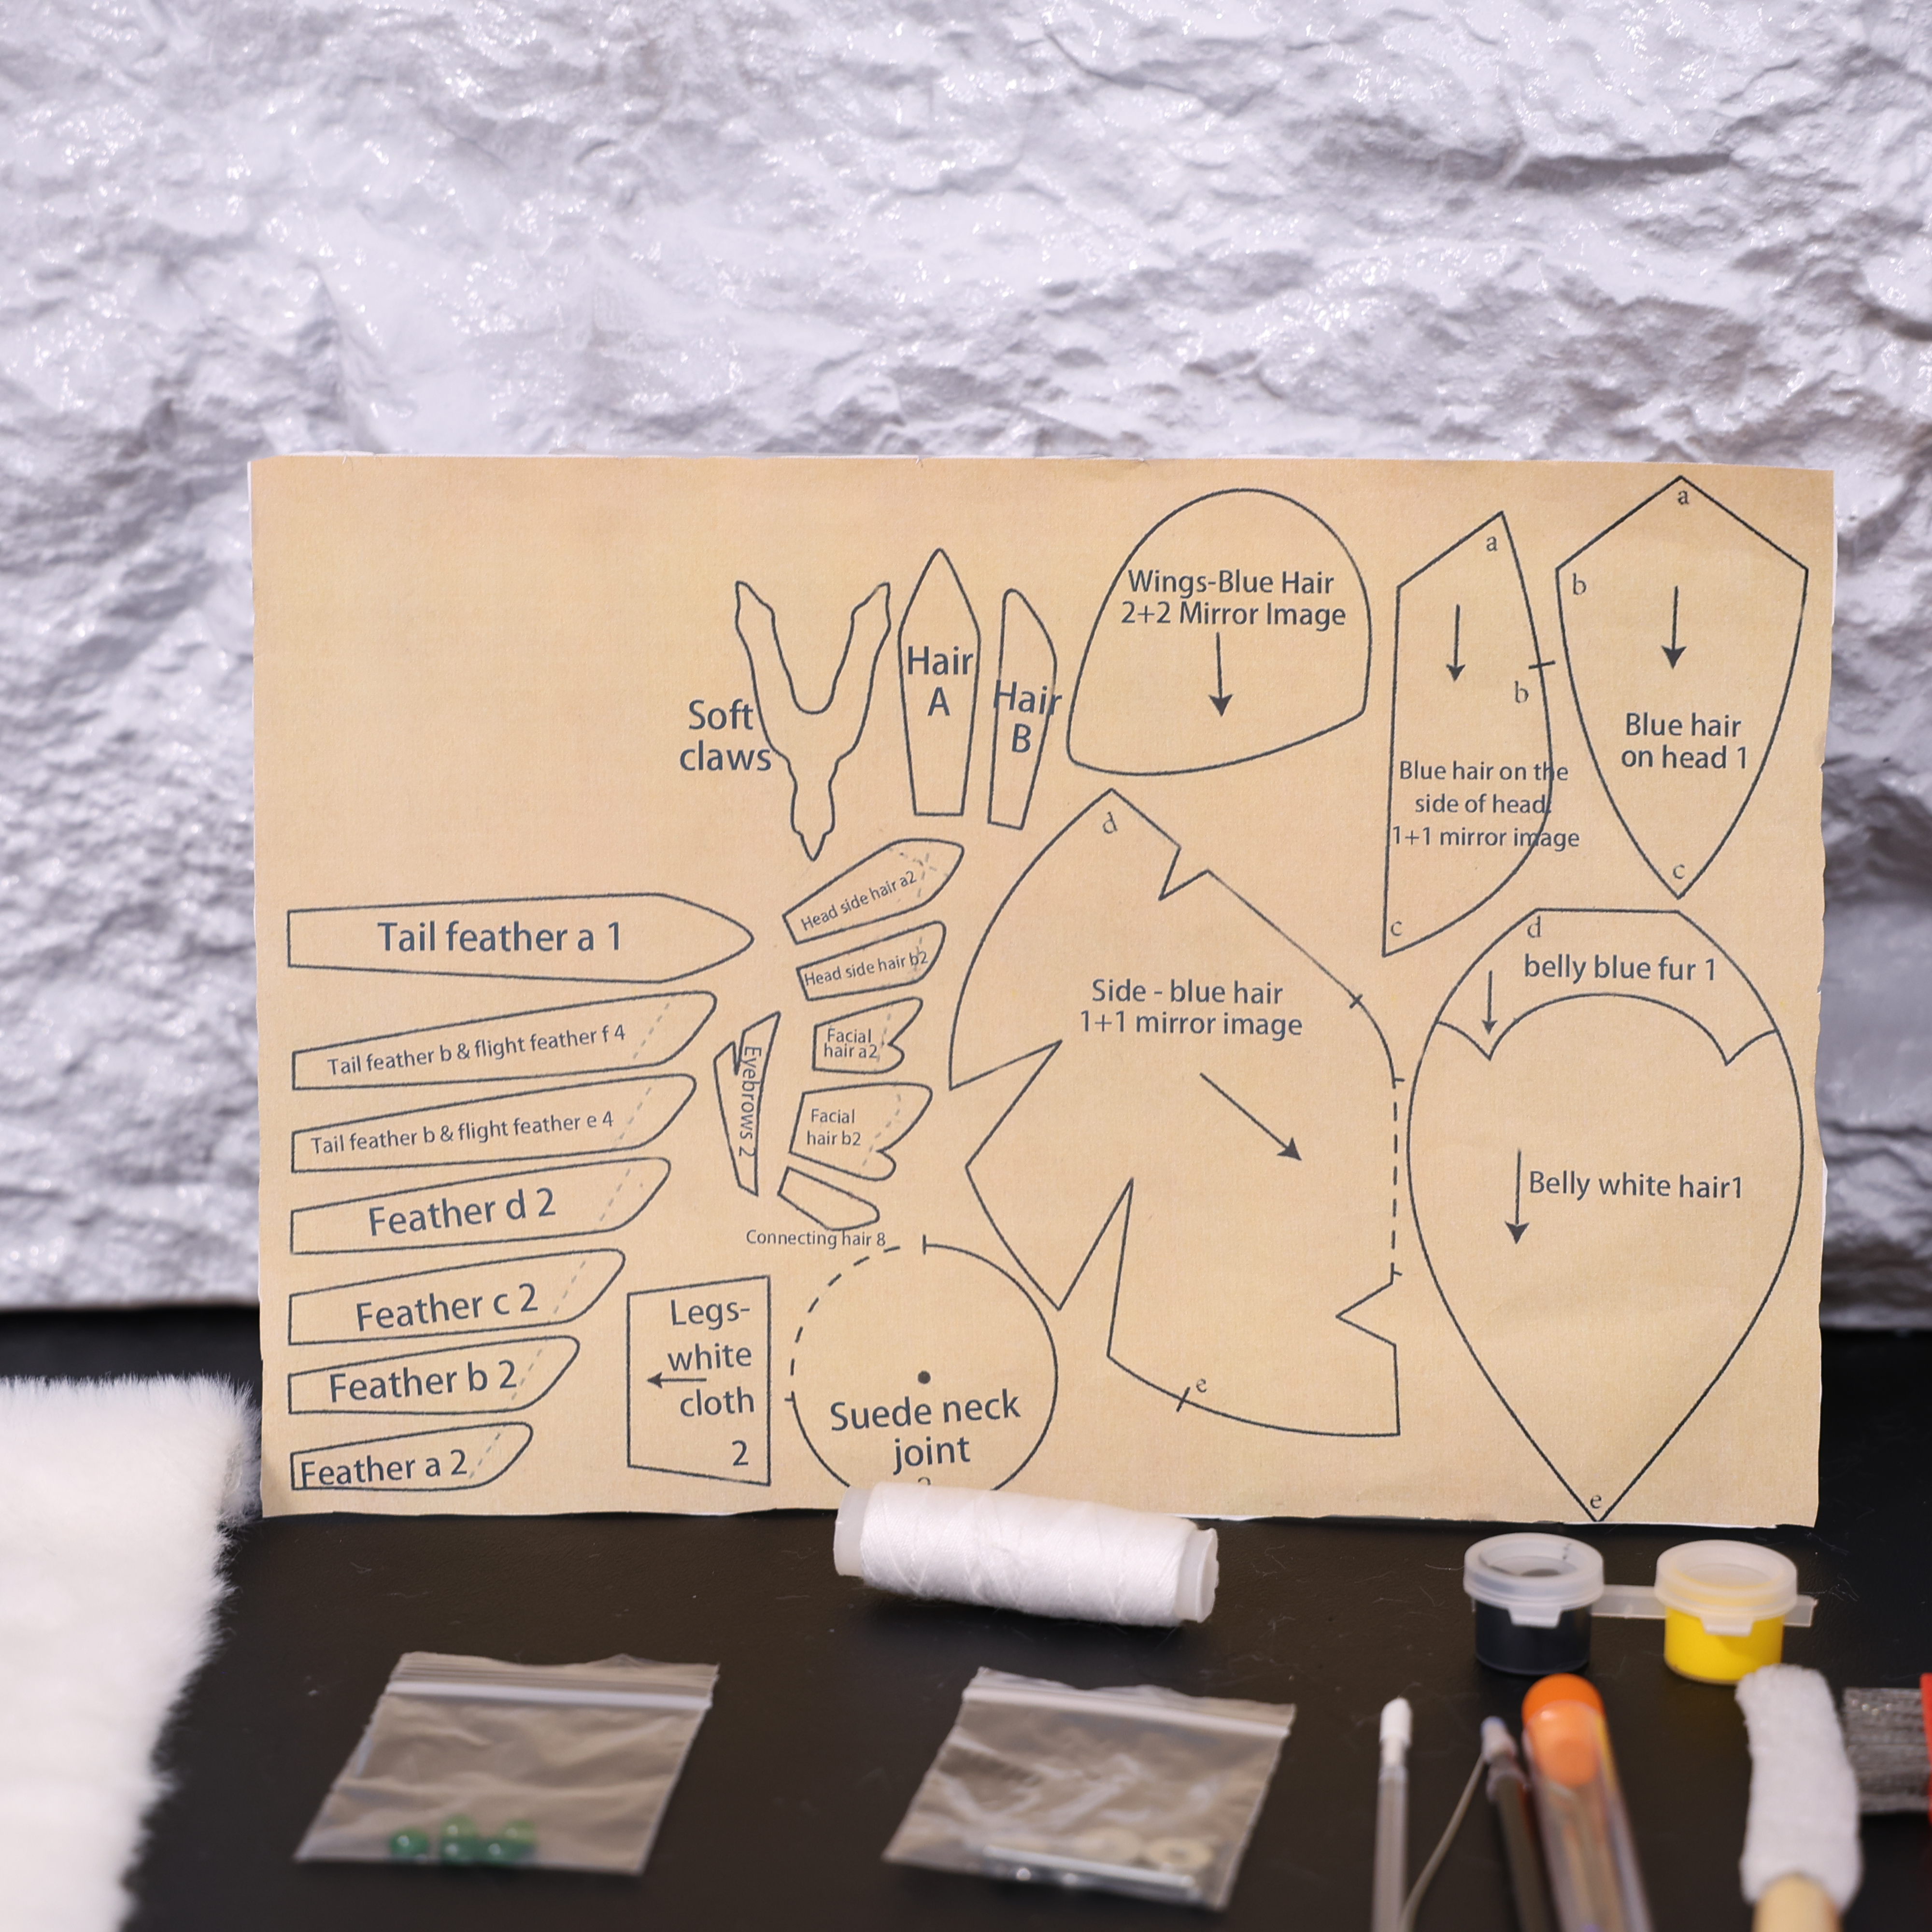 Wings-Blue Hair
2+2 Mirror Image
a
b
Blue hair on the
side of head
1+1 mirror image
c
a
b
Blue hair
on head 1
c
Soft
claws
Hair
A
Hair
B
Head side hair a2
Head side hair b2
Facial
hair a2
Facial
hair b2
Eyebrows 2
Connecting hair 8
Tail feather a 1
Tail feather b & flight feather f 4
Tail feather b & flight feather e 4
Feather d 2
Feather c 2
Feather b 2
Feather a 2
Legs-
white
cloth
2
Suede neck
joint
d
Side - blue hair
1+1 mirror image
e
d
belly blue fur 1
Belly white hair1
e